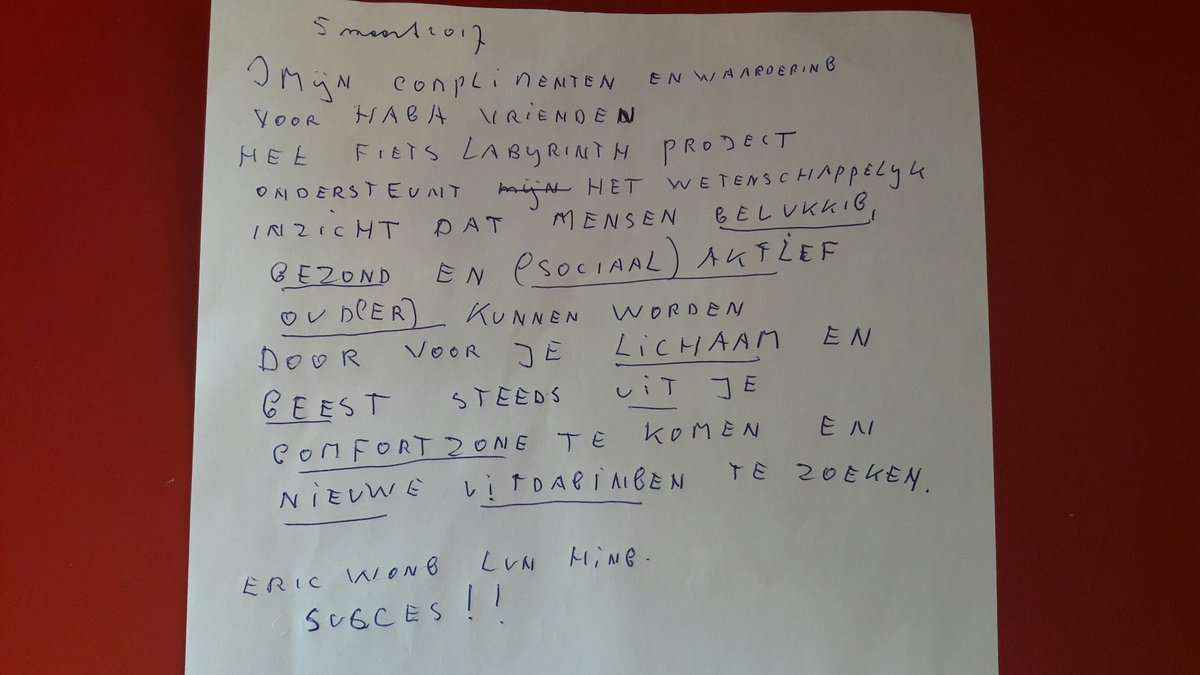 5 maart 2017
Mijn complimenten en waardering
voor HABA vrienden
Het fiets labyrinth project
ondersteunt mijn het wetenschappelyk
inzicht dat mensen gelukkig,
gezond en (sociaal) aktief
oud(er) kunnen worden
door voor je lichaam en
geest steeds uit je
comfortzone te komen en
nieuwe uitdagingen te zoeken.
Eric Wong Lun Hing.
Succes!!